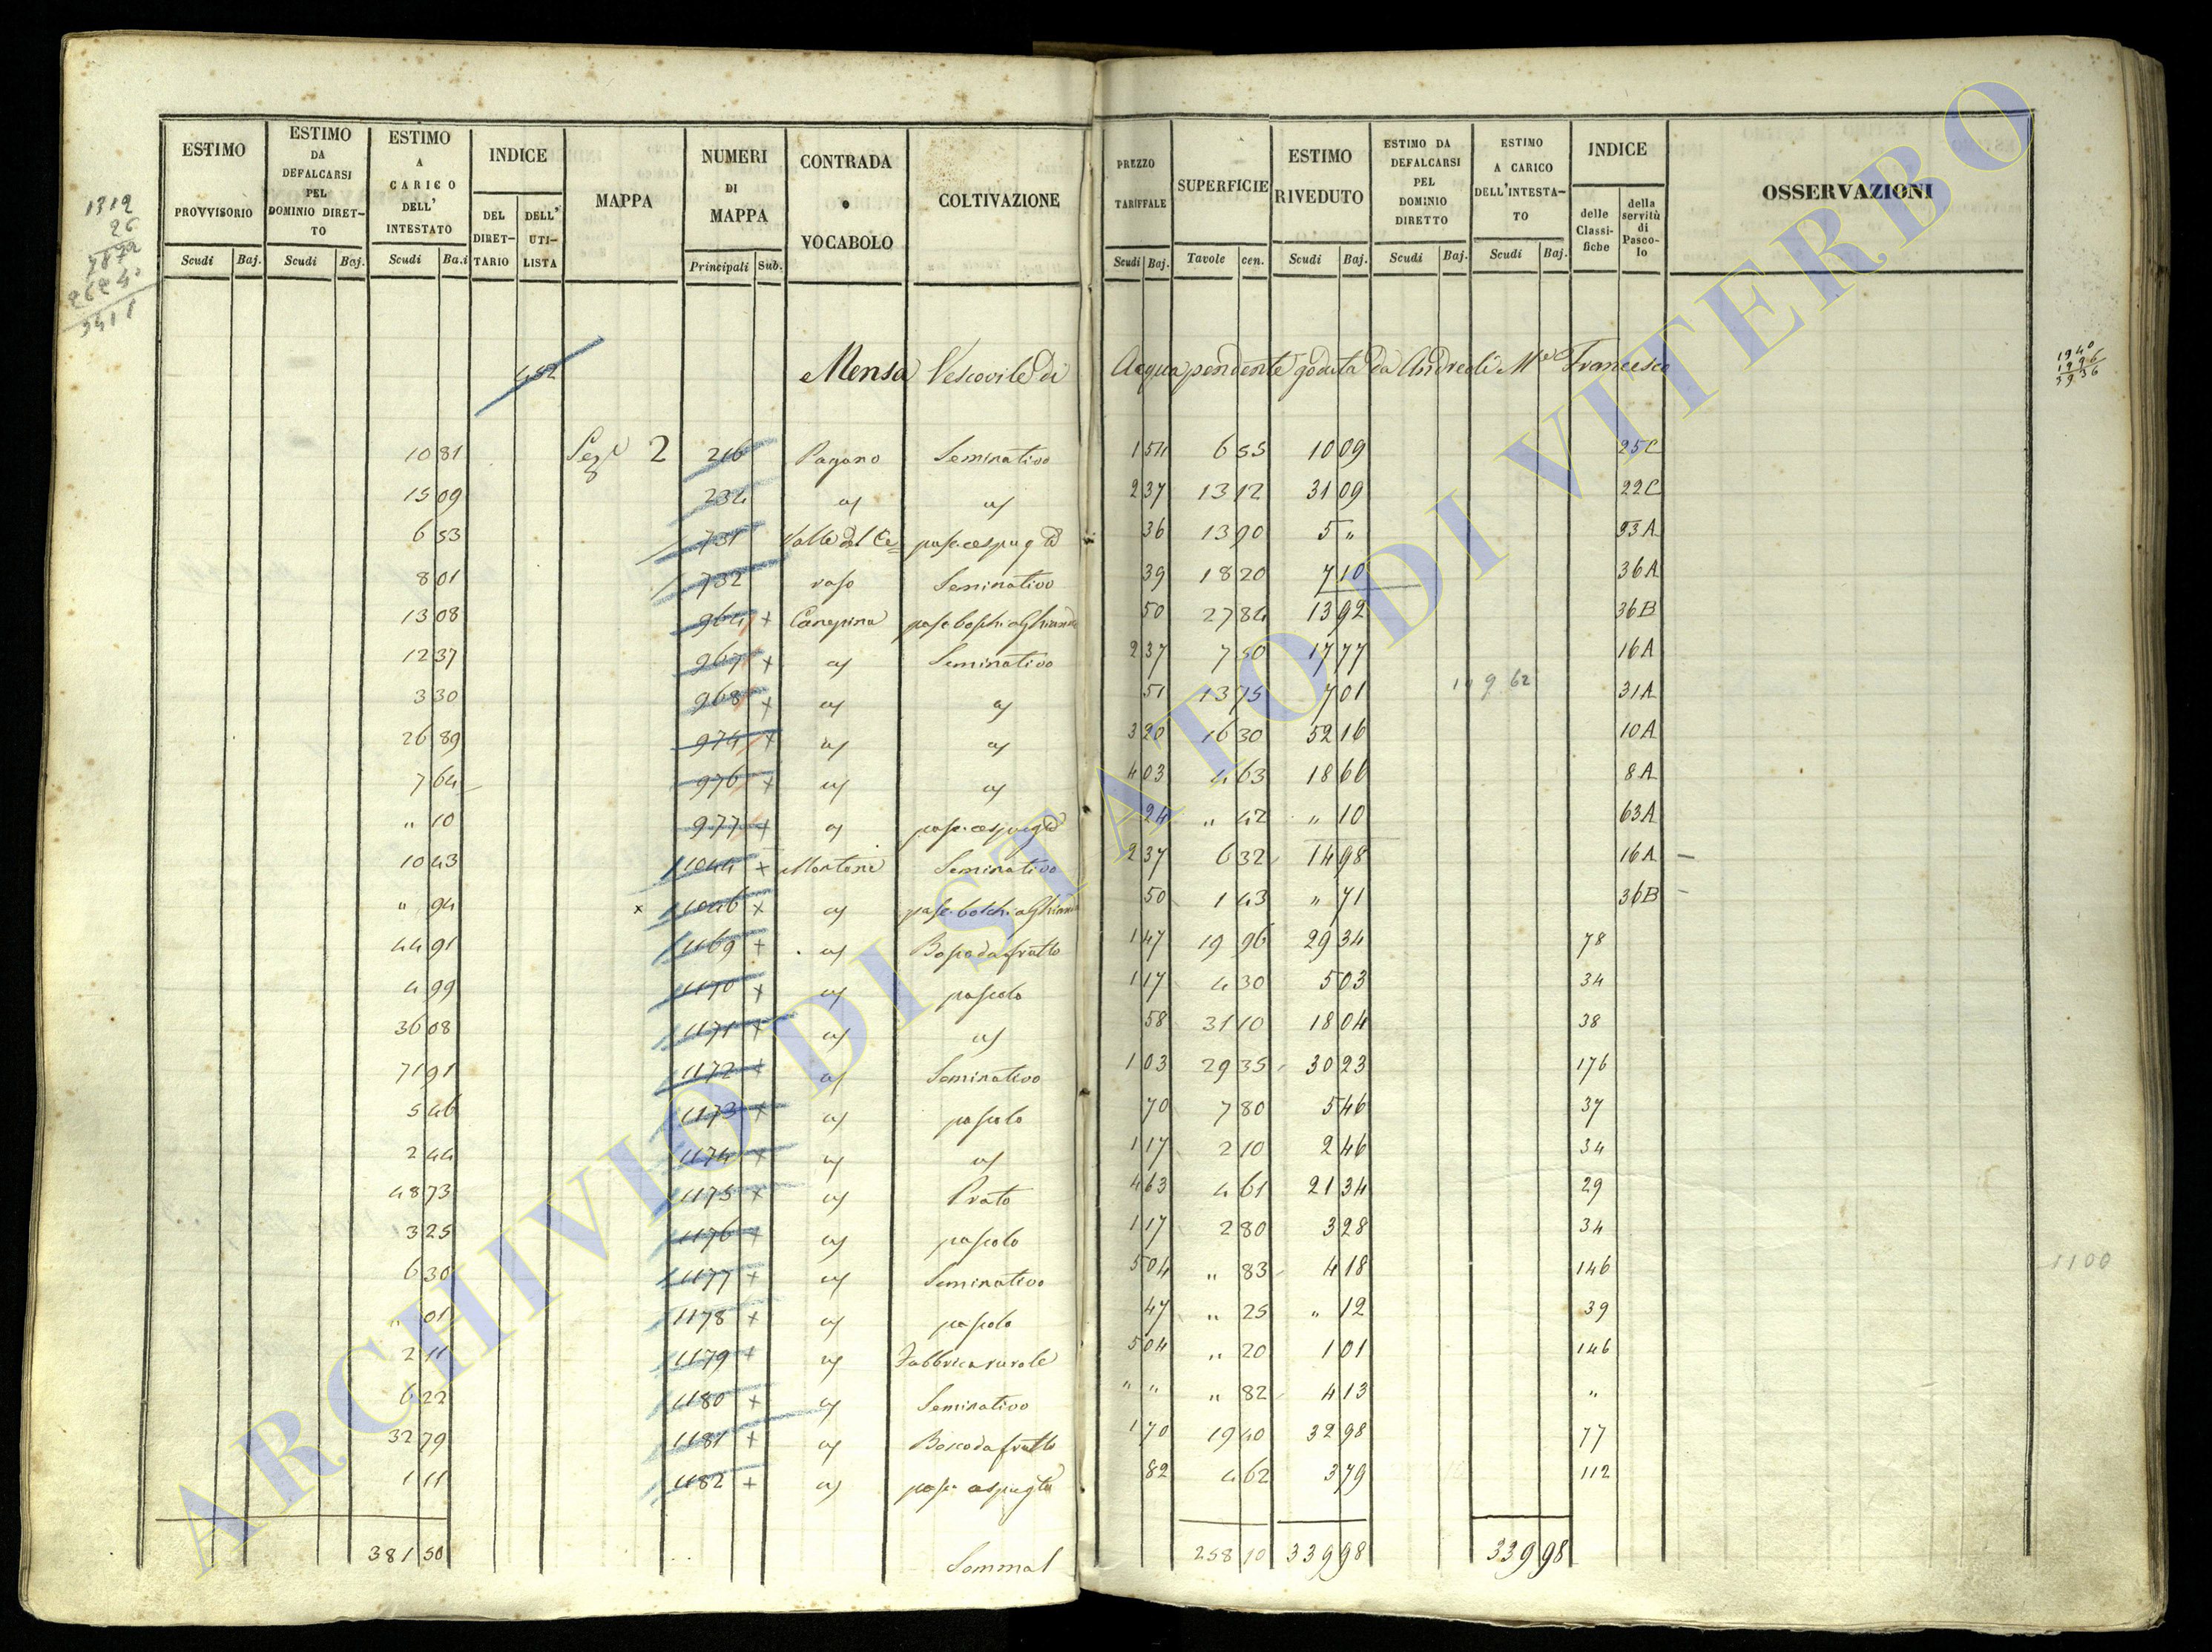 ESTIMO PROVVISORIO Scudi Baj.
ESTIMO DA DEFALCARSI PEL DOMINIO DIRET-TO Scudi Baj.
ESTIMO A CARICO DELL' INTESTATO Scudi Ba.i
INDICE DEL DIRET-TARIO DELL' UTI-LISTA
MAPPA
NUMERI DI MAPPA Principali Sub.
CONTRADA o VOCABOLO
COLTIVAZIONE
PREZZO TARIFFALE Scudi Baj.
SUPERFICIE Tavole cen.
ESTIMO RIVEDUTO Scudi Baj.
ESTIMO DA DEFALCARSI PEL DOMINIO DIRETTO Scudi Baj.
ESTIMO A CARICO DELL'INTESTA-TO Scudi Baj.
INDICE delle Classi-fiche della servitù di Pasco-lo
OSSERVAZIONI
1312
26
3411
1940
1996
3936
482 Mensa Vescovile di Acquapendente goduta da Andreoli Francesco
10 81 2 216 Pagano Seminativo 1 54 6 55 10 09 25C
15 09 234 2 37 13 12 31 09 22C
6 53 731 Valle del Ce= 36 13 90 5 " 93A
8 01 732 raso Seminativo 39 18 20 7 10 36A
13 08 964 + Canepina 50 27 84 13 92 36B
12 37 967 + Seminativo 2 37 7 50 17 77 16A
3 30 968 + 51 13 75 7 01 149 62 31A
26 89 974 + 3 20 16 30 52 16 10A
7 64 976 + 4 03 4 63 18 66 8A
" 10 977 + 24 " 42 " 10 63A
10 43 1044 + Montone Seminativo 2 37 6 32 14 98 16A
" 94 x 1046 + 50 1 43 " 71 36B
44 91 1169 + Bosco da frutto 1 47 19 96 29 34 78
4 99 1170 + pascolo 1 17 4 30 5 03 34
36 08 1171 + 58 31 10 18 04 38
71 91 1172 + Seminativo 1 03 29 35 30 23 176
5 46 1173 + pascolo 70 7 80 5 46 37
2 44 1174 + 1 17 2 10 2 46 34
48 73 1175 + Prato 4 63 4 61 21 34 29
3 25 1176 + pascolo 1 17 2 80 3 28 34
6 30 1177 + Seminativo 5 04 " 83 4 18 146
" 01 1178 + pascolo 47 " 25 " 12 39
2 11 1179 + Fabbrica rurale 5 04 " 20 1 01 146
6 22 1180 + Seminativo " " " 82 4 13 "
32 79 1181 + Bosco da frutto 1 70 19 40 32 98 77
1 11 1182 + 82 4 62 3 79 112
381 50 258 10 339 98 339 98
1100
ARCHIVIO DI STATO DI VITERBO